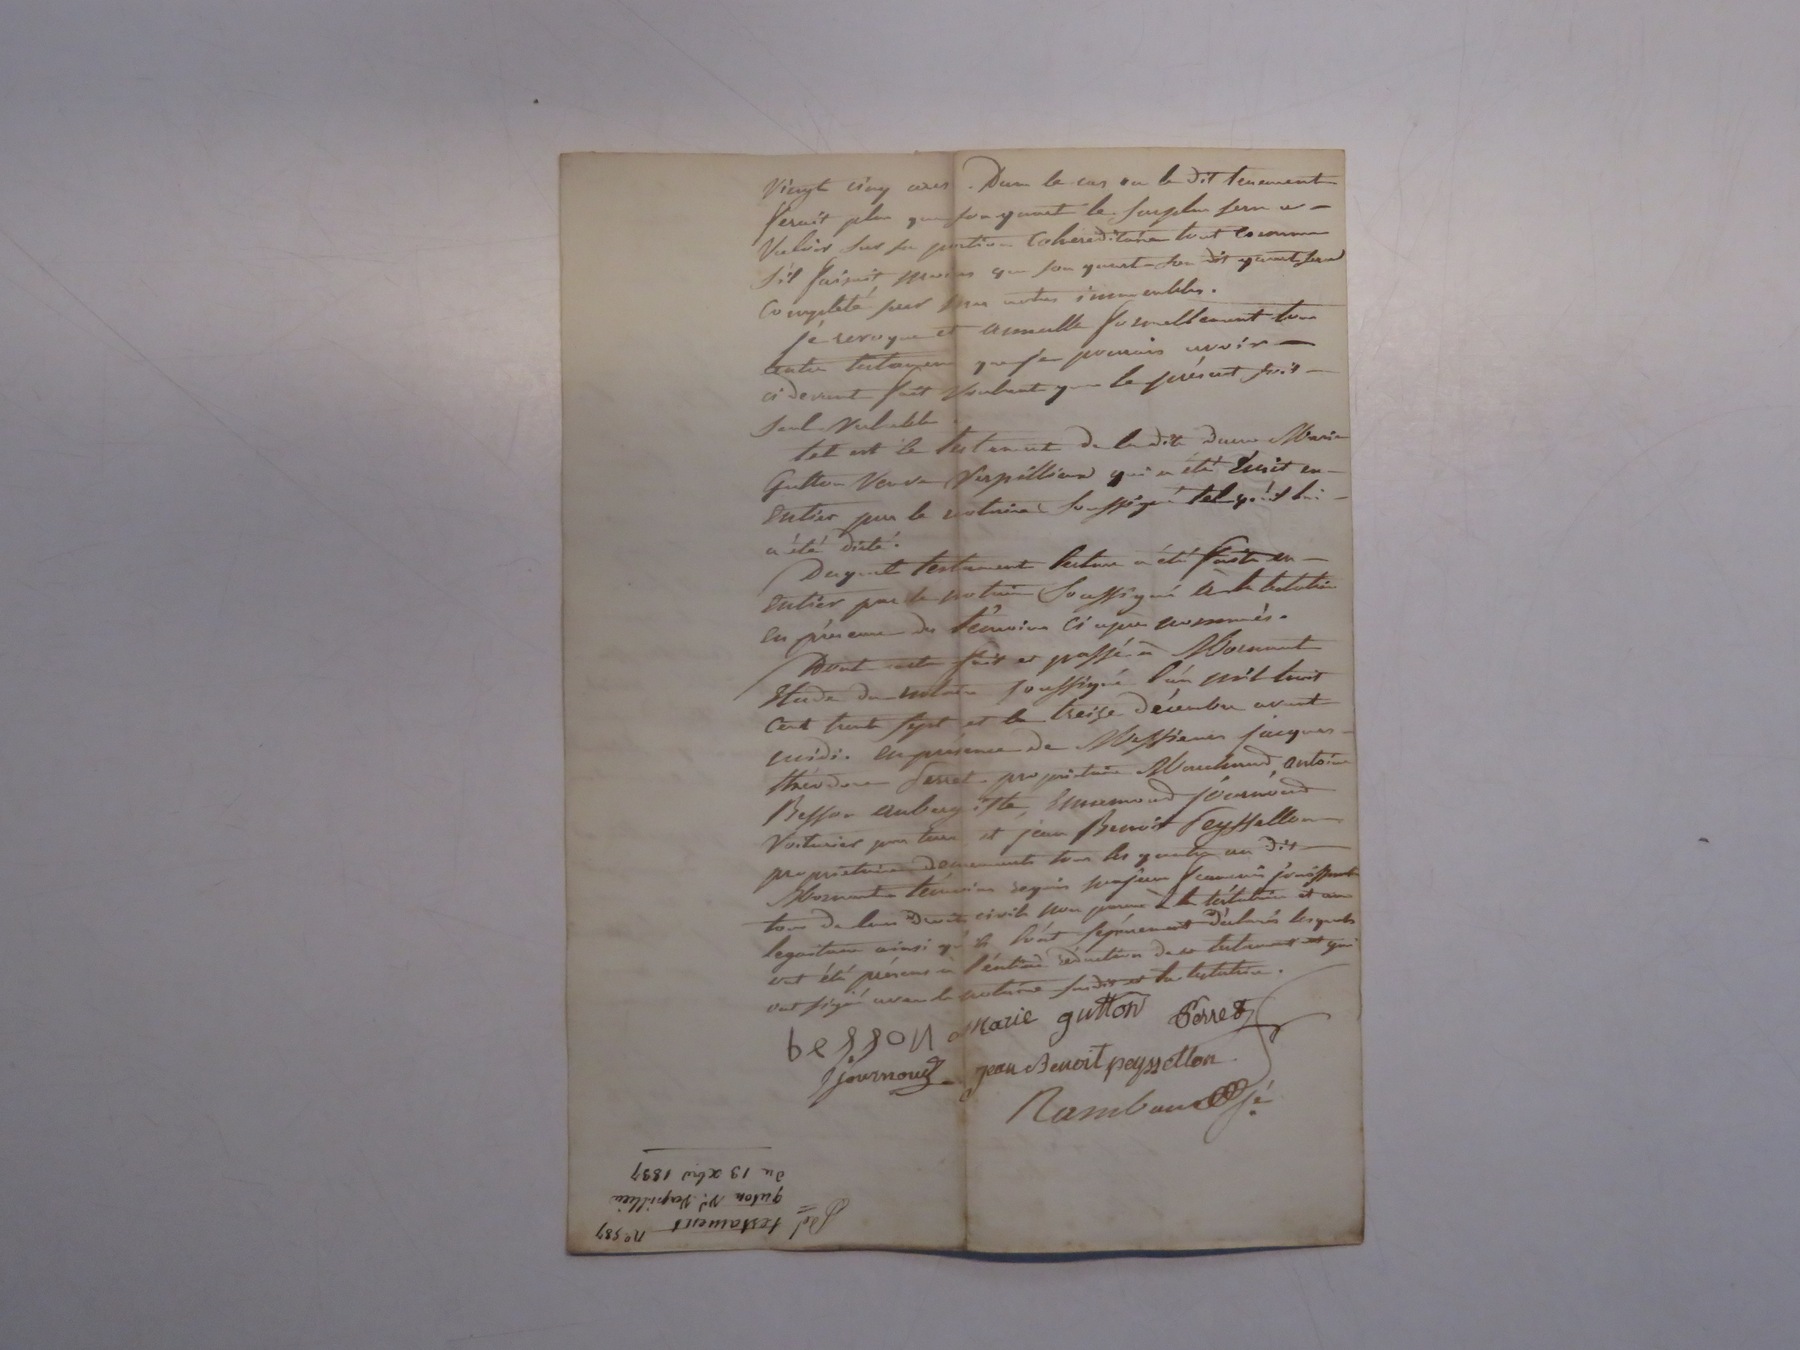 Vingt cinq ares. Dans le cas ou le dit tenement
ferait plus que son quart le surplus sera a
Valoir sur sa portion Cohereditaire tout comme
s'il faisait moins que son quart son dit quart sera
Completé par mes autres immeubles.
je revoque et annulle formellement tous
autre testament que je pourais avoir
ci devant fait Voulant que le présent soit
seul Valable.
tel est le testament de la dite dame Marie
Gutton Veuve Verpillieux qui a été Ecrit en
Entier par le notaire Soussigné tel qu'il lui
a été dicté.
Duquel testament lecture a été faite en
Entier par le notaire Soussigné à la testatrice
En présence des témoins ci apres nommés.
Dont acte fait et passé à Mornant
Etude du notaire soussigné l'an mil huit
Cent trente sept et le treize décembre avant
midi. en présence de Messieurs jacques
théodore ferret propriétaire Marchand, antoine
Besson aubergiste, Ennemond journoud
Voiturier par terre et jean Benoit Peyssellon
propriétaire demeurants tous les quatre au dit
Mornant témoins requis majeurs francais jouissant
tous de leurs droits civils non parens à la testatrice et aux
legataires ainsi qu'ils l'ont séparement déclarés lesquels
ont été présens à l'entière rédaction de ce testament et qui
ont signé avec le notaire susdit et la testatrice.
Besson Marie gutton ferret
journoud jean Benoit peyssellon
Rambaud
nº 587
testament
guton Vᵉ Verpillieu
du 13 xbre 1837